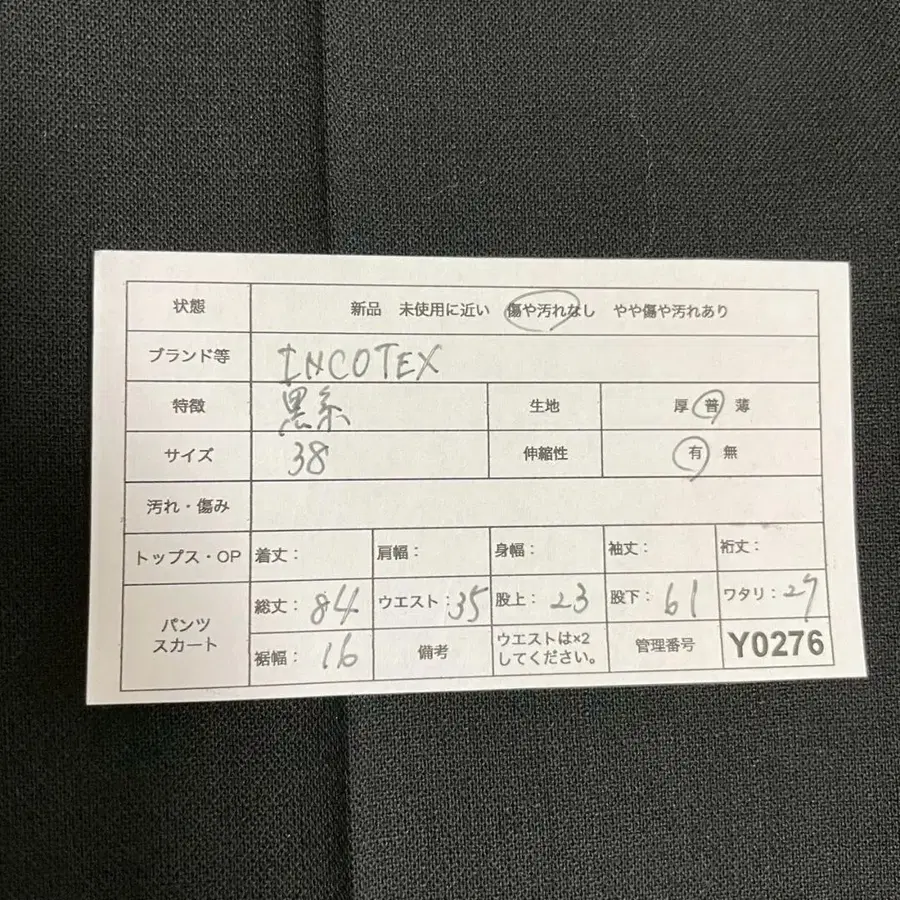 状態 新品 未使用に近い 傷や汚れなし やや傷や汚れあり
ブランド等 INCOTEX
特徴 黒系 生地 厚 普 薄
サイズ 38 伸縮性 有 無
汚れ・傷み
トップス・OP 着丈： 肩幅： 身幅： 袖丈： 裄丈：
パンツ スカート 総丈：84 ウエスト：35 股上：23 股下：61 ワタリ：27
裾幅：16 備考 ウエストは×2 してください。 管理番号 Y0276